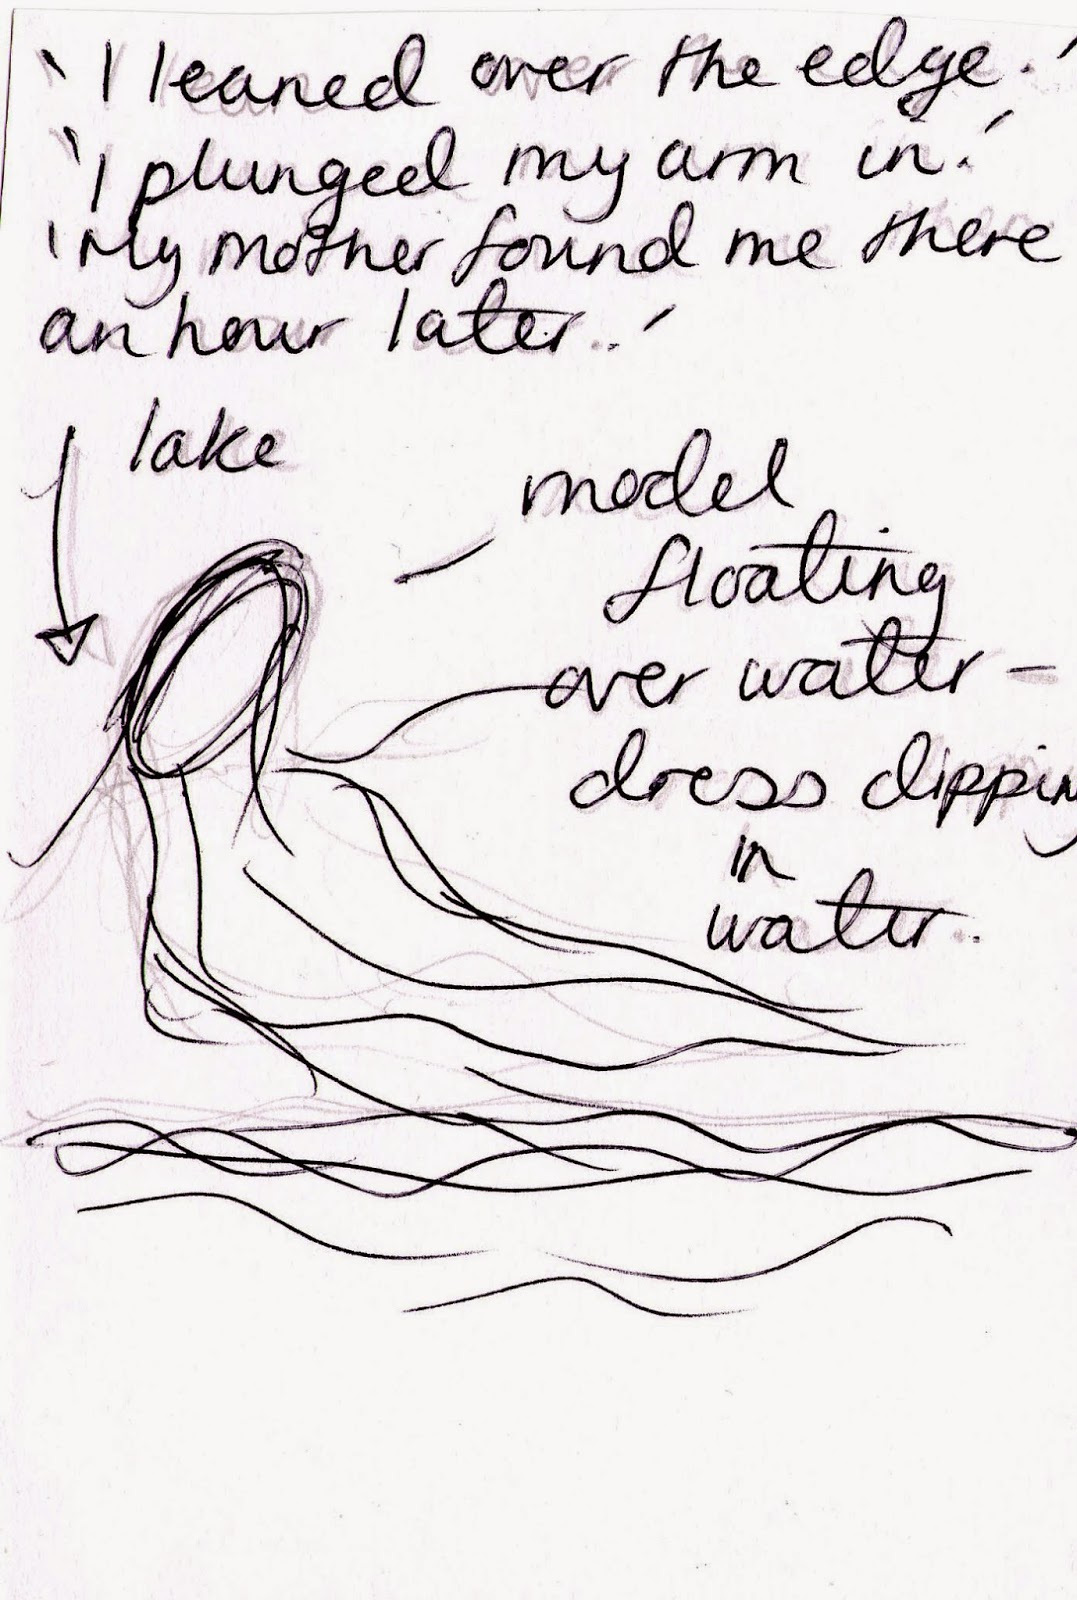 'I leaned over the edge.'
'I plunged my arm in.'
'My mother found me there
an hour later.'
lake
model
floating
over water -
dress dipping
in
water.